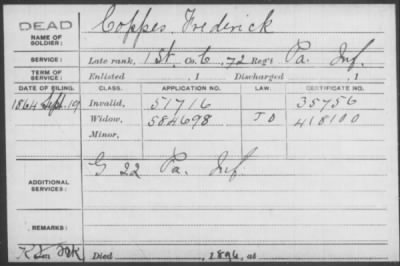 DEAD
NAME OF SOLDIER: Coppes, Frederick
SERVICE: Late rank, 1 St, Co. C, 72 Reg't Pa. Inf.
TERM OF SERVICE: Enlisted , 1 Discharged , 1
DATE OF FILING. CLASS. APPLICATION NO. LAW. CERTIFICATE NO.
1864 Sept. 19 Invalid, 51716 35756
Widow, 584698 418100
Minor,
ADDITIONAL SERVICES: G 22 Pa. Inf
REMARKS:
Died , 1896, at